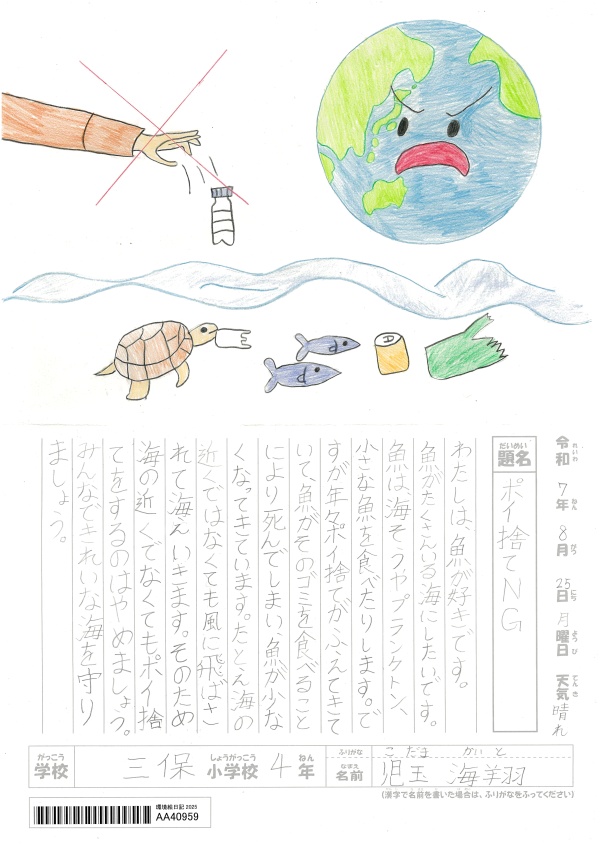 令和 7年 8月 25日 月曜日 天気 晴れ
れいわ ねん がつ にち ようび てんき
だいめい
題名 ポイ捨てNG
わたしは、魚が好きです。
魚がたくさんいる海にしたいです。
魚は、海そうやプランクトン、
小さな魚を食べたりします。で
すが年々ポイ捨てがふえてきて
いて、魚がそのゴミを食べること
により死んでしまい、魚が少な
くなってきています。たとえ海の
近くではなくても風に飛ばさ
れて海へいきます。そのため
海の近くでなくてもポイ捨
てをするのはやめましょう。
みんなできれいな海を守り
ましょう。
がっこう しょうがっこう ねん
学校 三保 小学校 4年
ふりがな こだま かいと
なまえ
名前 児玉 海翔
(漢字で名前を書いた場合は、ふりがなをふってください)
環境絵日記 2025
AA40959